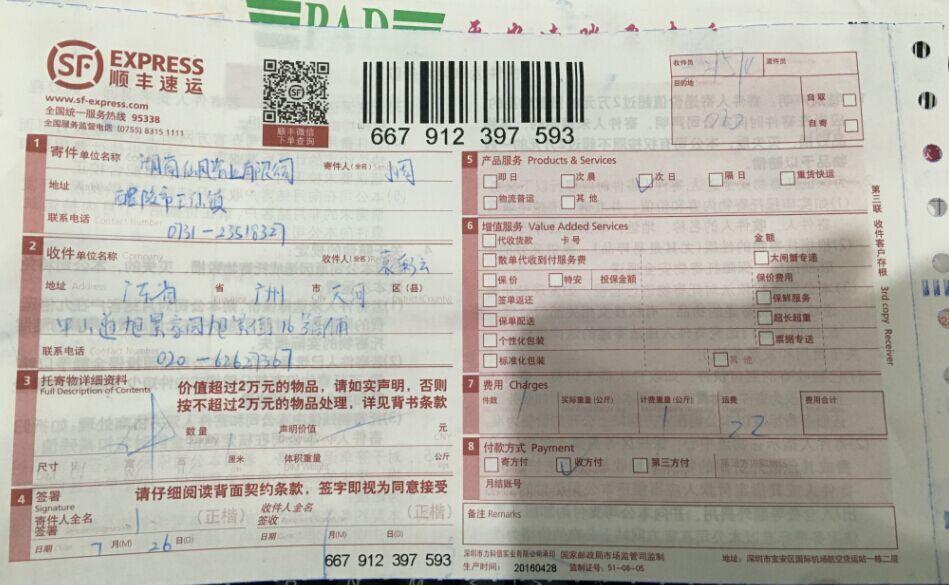 SF EXPRESS
顺丰速运
www.sf-express.com
全国统一服务热线 95338
全国服务监督电话 (0755) 8315 1111
顺丰微信
下单查询
667 912 397 593
收件员
派件员
目的地
020
自取
自寄
1 寄件单位名称 寄件人(全名)
地址 醴陵市
联系电话 0731-23518327
2 收件单位名称 收件人(全名) 袁彩云
地址 广东省 省 广州 市 天河 区(县)
中山道旭景家园旭景街16号铺
联系电话 020-62627367
3 托寄物详细资料
Full Description of Contents
价值超过2万元的物品，请如实声明，否则
按不超过2万元的物品处理，详见背书条款
数量 声明价值 元
尺寸 厘米 体积重量 公斤
4 签署
Signature
请仔细阅读背面契约条款，签字即视为同意接受
寄件人全名
签署
(正楷)
收件人全名
签收
(正楷)
日期 7 月(M) 26 日(D)
月(M) 日(D)
667 912 397 593
5 产品服务 Products & Services
即日 次晨 次日 隔日 重货快运
物流普运 其他
6 增值服务 Value Added Services
代收货款 卡号 金额
散单代收到付服务费 大闸蟹专递
保价 特安 投保金额 保价费用
签单返还 保鲜服务
保单配送 超长超重
个性化包装 票据专送
标准化包装 其他
7 费用 Charges
件数 实际重量(公斤) 计费重量(公斤) 运费 费用合计
1 1 22
8 付款方式 Payment
寄方付 收方付 第三方付
月结账号
备注 Remarks
深圳市力科佰实业有限公司承印 国家邮政局市场监管司监制 地址：深圳市宝安区国际机场航空货运站一栋二层
生产时间： 20160428 监制证号：51-08-05
第三联 收件客户存根 3rd copy Receiver